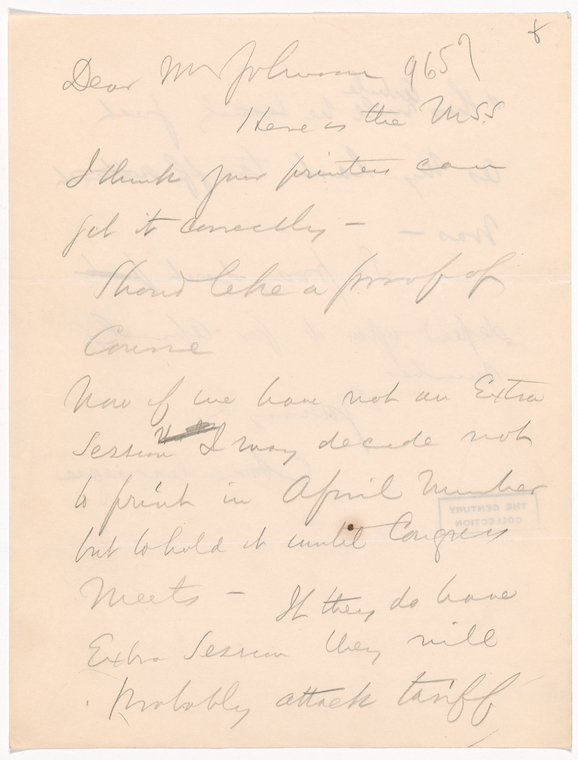 8
Dear Mr Johnson 9657
Here is the MSS
I think your printers can
get it correctly —
Should like a proof of
Course
Now if we have not an Extra
Session I may decide not
to print in April Number
but to hold it until Congress
Meets — If they do have
Extra Session they will
probably attack tariff
THE CENTURY
COLLECTION